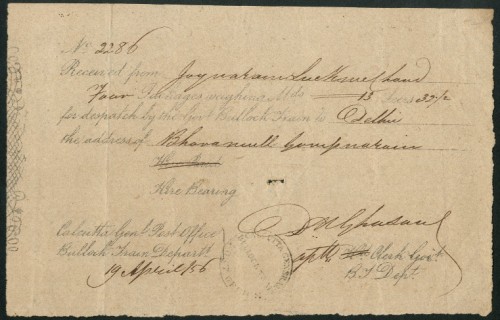 No. 2286
Received from Joynarain Luckmeechand
Four Packages weighing Mds 13 Seers 32 1/2
for despatch by the Govt. Bullock Train to Delhi
the address of Bhavanmull Gompnarain
Hire Bearing
Calcutta Genl. Post Office
Bullock Train Departt.
19 April / 56
Clerk Govt.
B. T. Dept.